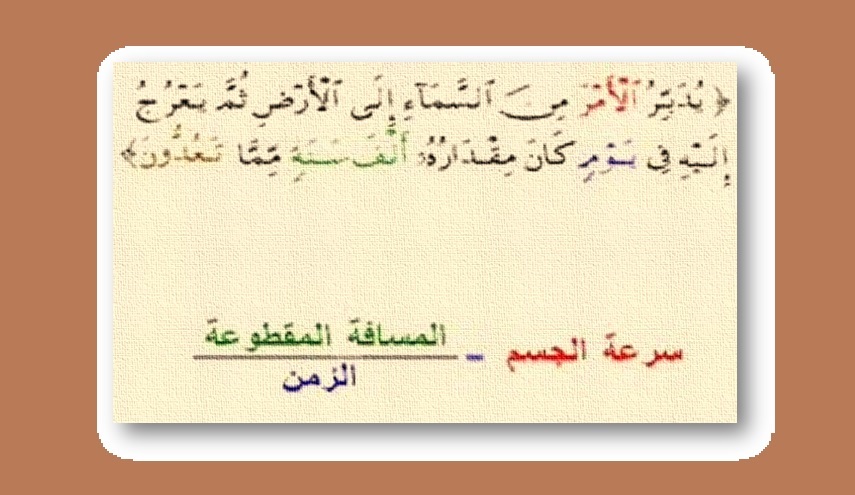 ﴿ يُدَبِّرُ ٱلْأَمْرَ مِنَ ٱلسَّمَآءِ إِلَى ٱلْأَرْضِ ثُمَّ يَعْرُجُ
إِلَيْهِ فِى يَوْمٍ كَانَ مِقْدَارُهُۥٓ أَلْفَ سَنَةٍ مِّمَّا تَعُدُّونَ﴾
سرعة الجسم = المسافة المقطوعة
الزمن